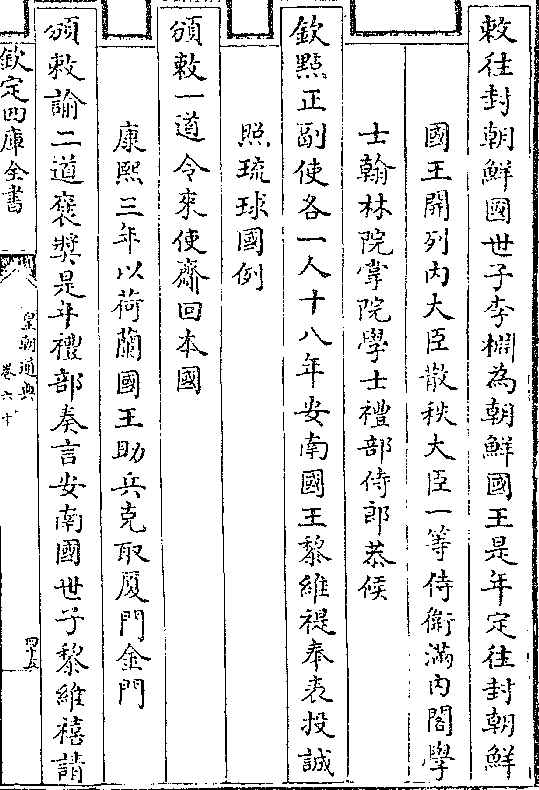 敕往封朝鮮國世子李棩為朝鮮國王是年定往封朝鮮
國王開列內大臣散秩大臣一等侍衛滿內閣學
士翰林院掌院學士禮部侍郎恭候
欽點正副使各一人十八年安南國王黎維禔奉表投誠
照琉球國例
頒敕一道令來使齎回本國
康熙三年以荷蘭國王助兵克取厦門金門
頒敕諭二道褒奬是年禮部奏言安南國世子黎維禧請
欽定四庫全書
皇朝通典
卷六十
四十五